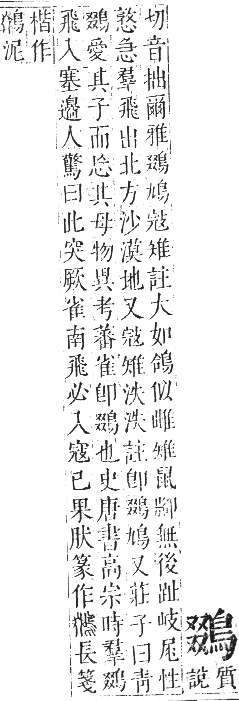 鵽
質
說
切音拙爾雅鵽鳩寇雉註大如鴿似雌雉鼠脚無後趾岐尾性
憨急羣飛出北方沙漠地又寇雉泆泆註卽鵽鳩又莊子曰靑
鵽愛其子而忘其母物異考蕃雀卽鵽也史唐書高宗時羣鵽
飛入塞邊人驚曰此突厥雀南飛必入寇已果肰篆作鵽長箋
楷作
鴲泥